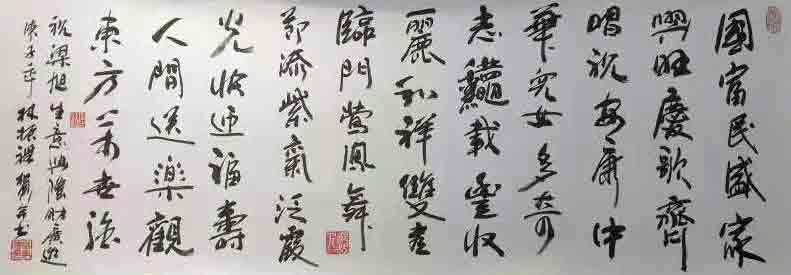 國富民盛家
興旺慶歌齊
唱祝安康中
華兒女多奇
志載豐收
麗和祥雙喜
臨門鶯鳳舞
節添紫氣泛霞
光收迎福壽
人間送樂觀
東方萬世強
祝梁旭生意興隆財廣進
庚子年林振賀書